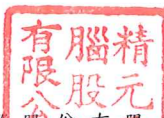 精元
腦股
有限公